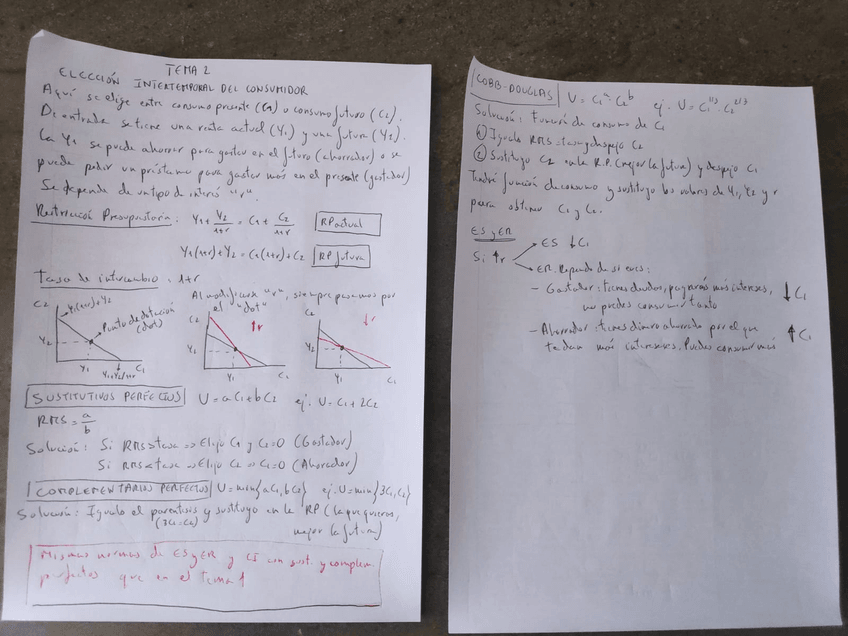 TEMA 2
ELECCIÓN INTERTEMPORAL DEL CONSUMIDOR
Aquí se elige entre consumo presente (C1) o consumo futuro (C2).
De entrada se tiene una renta actual (Y1) y una futura (Y2).
La Y1 se puede ahorrar para gastar en el futuro (ahorrador) o se
puede pedir un préstamo para gastar más en el presente (gastador)
Se depende de un tipo de interés "r".
Restricción Presupuestaria: Y1 + Y2/1+r = C1 + C2/1+r RP actual
Y1(1+r)+Y2 = C1(1+r)+C2 RP futura
Tasa de intercambio: 1+r
Al modificarse "r", siempre pasamos por
el "dot"
C2 Y1(1+r)+Y2
Punto de dotación
(dot)
Y2
Y1 Y1+Y2/1+r C1
C2 ↑r
Y2
Y1 C1
C2 ↓r
Y2
Y1 C1
SUSTITUTIVOS PERFECTOS U = aC1+bC2 ej: U = C1+2C2
RMS = a/b
Solución: Si RMS>tasa => Elijo C1 y C2=0 (Gastador)
Si RMS<tasa => Elijo C2 => C1=0 (Ahorrador)
COMPLEMENTARIOS PERFECTOS U=min{aC1,bC2} ej: U=min{3C1,C2}
Solución: Igualo el paréntesis y sustituyo en la RP (la que quieras,
(3C1=C2) mejor la futura)
Mismas normas de ES y ER y CI con sust. y complem.
perfectos que en el tema 1
COBB-DOUGLAS U = C1^a · C2^b ej: U = C1^1/3 · C2^2/3
Solución: Función de consumo de C1
① Igualo RMS = tasa y despejo C2
② Sustituyo C2 en la R.P. (mejor la futura) y despejo C1
Tendré función de consumo y sustituyo los valores de Y1, Y2 y r
para obtener C1 y C2.
ES y ER
Si ↑r
ES ↓C1
ER. Depende de si eres:
- Gastador: tienes deudas, pagarás más intereses,
no puedes consumir tanto ↓C1
- Ahorrador: tienes dinero ahorrado por el que
te dan más intereses. Puedes consumir más ↑C1